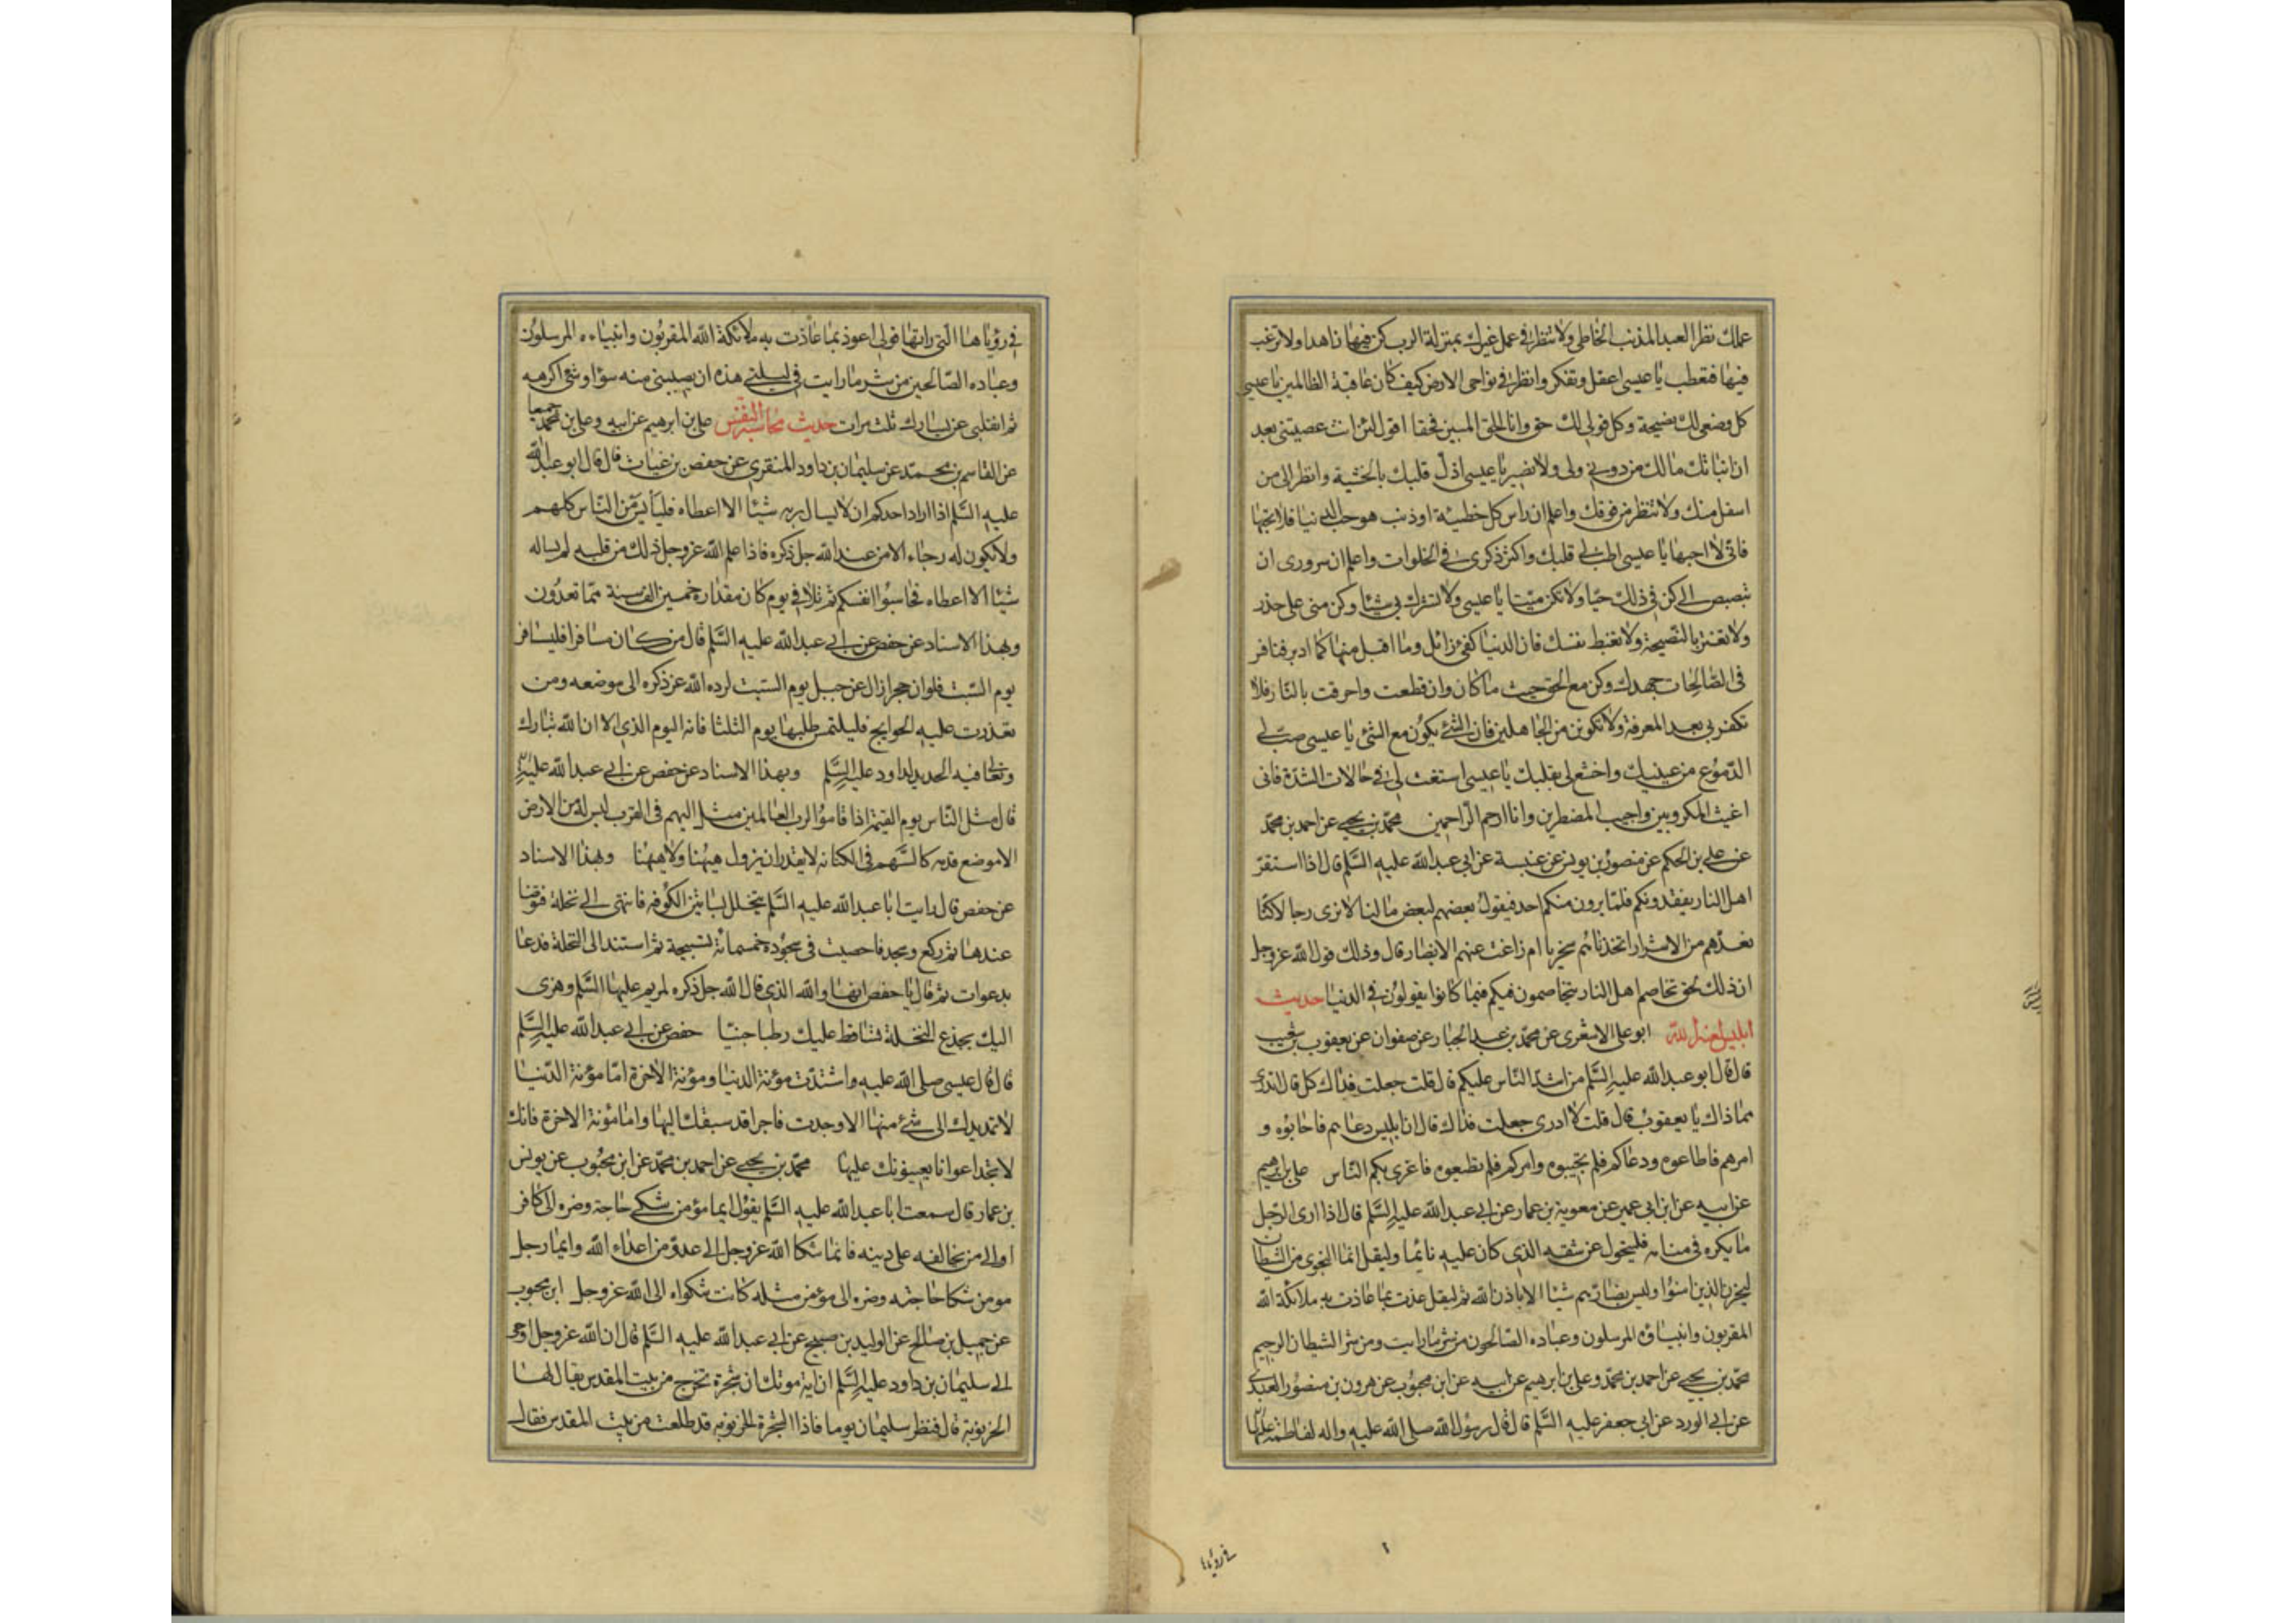 عملك نظر العبد المذنب الخاطى ولا تنظر فى عمل غيرك بمنزلة الرب كن فيها زاهدا ولا ترغب
فيها فتعطب يا عيسى اعقل وتفكر وانظر فى نواحى الارض كيف كان عاقبة الظالمين يا عيسى
كل وصفى لك نصيحة وكل قولى لك حق وانا الحق المبين فحقا اقول لئن انت عصيتنى بعد
ان انباتك مالك من دونى ولى ولا نصير يا عيسى اذل قلبك بالخشية وانظر الى من
اسفل منك ولا تنظر من فوقك واعلم ان راس كل خطيئة او ذنب هو حب الدنيا فلا تحبها
فانى لا احبها يا عيسى اطب لى قلبك واكثر ذكرى فى الخلوات واعلم ان سرورى ان
تبصبص الى كن فى ذلك حيا ولا تكن ميتا يا عيسى ولا تشرك بى شيئا وكن منى على حذر
ولا تغتر بالنصيحة ولا تغبط نفسك فان الدنيا كفئ زائل وما اقبل منها كما ادبر فنافر
فى الصالحات جهدك وكن مع الحق حيث ما كان وان قطعت واحرقت بالنار فلا
تكفر بى بعد المعرفة ولا تكونن من الجاهلين فان الشئ يكون مع الشئ يا عيسى صب لى
الدموع من عينيك واخشع لى بقلبك يا عيسى استغث لى فى حالات الشدة فانى
اغيث المكروبين واجيب المضطرين وانا ارحم الراحمين محمد بن يحيى عن احمد بن محمد
عن على بن الحكم عن منصور بن يونس عن عنبسة عن ابى عبد الله عليه السلم قال اذا استقر
اهل النار يفقدونكم فلما يرون منكم احد فيقول بعضهم لبعض ما لنا لا نرى رجالا كنا
نعدهم من الاشرار اتخذناهم سخريا ام زاغت عنهم الابصار قال وذلك قول الله عز وجل
ان ذلك لحق تخاصم اهل النار يتخاصمون فيكم فيما كانوا يقولون فى الدنيا حديث
ابليس لعنه الله ابو على الاشعرى عن محمد بن عبد الجبار عن صفوان عن يعقوب بن شعيب
قال قال ابو عبد الله عليه السلم من اشد الناس عليكم قال قلت جعلت فداك كل قال اتدرى
مما ذاك يا يعقوب قال قلت لا ادرى جعلت فداك قال ان ابليس دعاهم فاجابوه و
امرهم فاطاعوه ودعاكم فلم تجيبوه وامركم فلم تطيعوه فاغرى بكم الناس على بن ابرهيم
عن ابيه عن ابن ابى عمير عن معوية بن عمار عن ابى عبد الله عليه السلم قال اذا ارى الرجل
ما يكره فى منامه فليتحول عن شقه الذى كان عليه نائما وليقل انما النجوى من الشيطان
ليحزن الذين امنوا وليس بضارهم شيئا الا باذن الله ثم ليقل عذت بما عاذت به ملائكة الله
المقربون وانبياؤه المرسلون وعباده الصالحون من شر ما رايت ومن شر الشيطان الرجيم
محمد بن يحيى عن احمد بن محمد وعلى بن ابرهيم عن ابيه عن ابن محبوب عن هرون بن منصور العبدى
عن ابى الورد عن ابى جعفر عليه السلم قال قال رسول الله صلى الله عليه واله لفاطمة عليها
فى رؤياها
فى رؤياها التى راتها قولى اعوذ بما عاذت به ملائكة الله المقربون وانبياءه المرسلون
وعباده الصالحين من شر ما رايت فى ليلتى هذه ان يصيبنى منه سؤ او شئ اكرهه
ثم انقلبى عن يسارك ثلث مرات حديث محاسبة النفس على بن ابرهيم عن ابيه وعلى بن محمد جميعا
عن القاسم بن محمد عن سليمان بن داود المنقرى عن حفص بن غياث قال قال ابو عبد الله
عليه السلم اذا اراد احدكم ان لا يسال ربه شيئا الا اعطاه فليأيس من الناس كلهم
ولا يكون له رجاء الا من عند الله جل ذكره فاذا علم الله عز وجل ذلك من قلبه لم يساله
شيئا الا اعطاه فحاسبوا انفسكم ثم تلا فى يوم كان مقداره خمسين الف سنة مما تعدون
وبهذا الاسناد عن حفص عن ابى عبد الله عليه السلم قال من كان مسافرا فليسافر
يوم السبت فلو ان حجرا زال عن جبل يوم السبت لرده الله عز ذكره الى موضعه ومن
تعذرت عليه الحوايج فليلتمس طلبها يوم الثلثا فانه اليوم الذى الان الله تبارك
وتعالى فيه الحديد لداود عليه السلم وبهذا الاسناد عن حفص عن ابى عبد الله عليه
قال مثل الناس يوم القيمة اذا قاموا لرب العالمين مثل اليهم فى القرب ليس له من الارض
الا موضع قدمه كالسهم فى الكنانه لا يقدر ان يزول هيهنا ولا هيهنا وبهذا الاسناد
عن حفص قال رايت ابا عبد الله عليه السلم يتخلل بساتين الكوفه فانتهى الى نخلة فتوضا
عندها ثم ركع وسجد فاحصيت فى سجوده خمسمائة تسبيحة ثم استند الى النخلة فدعا
بدعوات ثم قال يا حفص انها والله الذى قال الله جل ذكره لمريم عليها السلم وهزى
اليك بجذع النخلة تساقط عليك رطبا جنيا حفص عن ابى عبد الله عليه السلم
قال قال عيسى صلى الله عليه واشتدت مؤنة الدنيا ومؤنة الاخرة اما مؤنة الدنيا
لا تمد يدك الى شئ منها الا وجدت فاجرا قد سبقك اليها واما مؤنة الاخرة فانك
لا تجد اعوانا يعينونك عليها محمد بن يحيى عن احمد بن محمد عن ابن محبوب عن يونس
بن عمار قال سمعت ابا عبد الله عليه السلم يقول ايما مؤمن شكى حاجته وضره الى كافر
او الى من يخالفه على دينه فانما شكا الله عز وجل الى عدو من اعداء الله وايما رجل
مومن شكا حاجته وضره الى مؤمن مثله كانت شكواه الى الله عز وجل ابن محبوب
عن جميل بن صالح عن الوليد بن صبيح عن ابى عبد الله عليه السلم قال ان الله عز وجل اوحى
الى سليمان بن داود عليه السلم ان اية موتك ان شجرة تخرج من بيت المقدس يقال لها
الخرنوبه قال فنظر سليمان يوما فاذا الشجرة الخرنوبه قد طلعت من بيت المقدس فقال